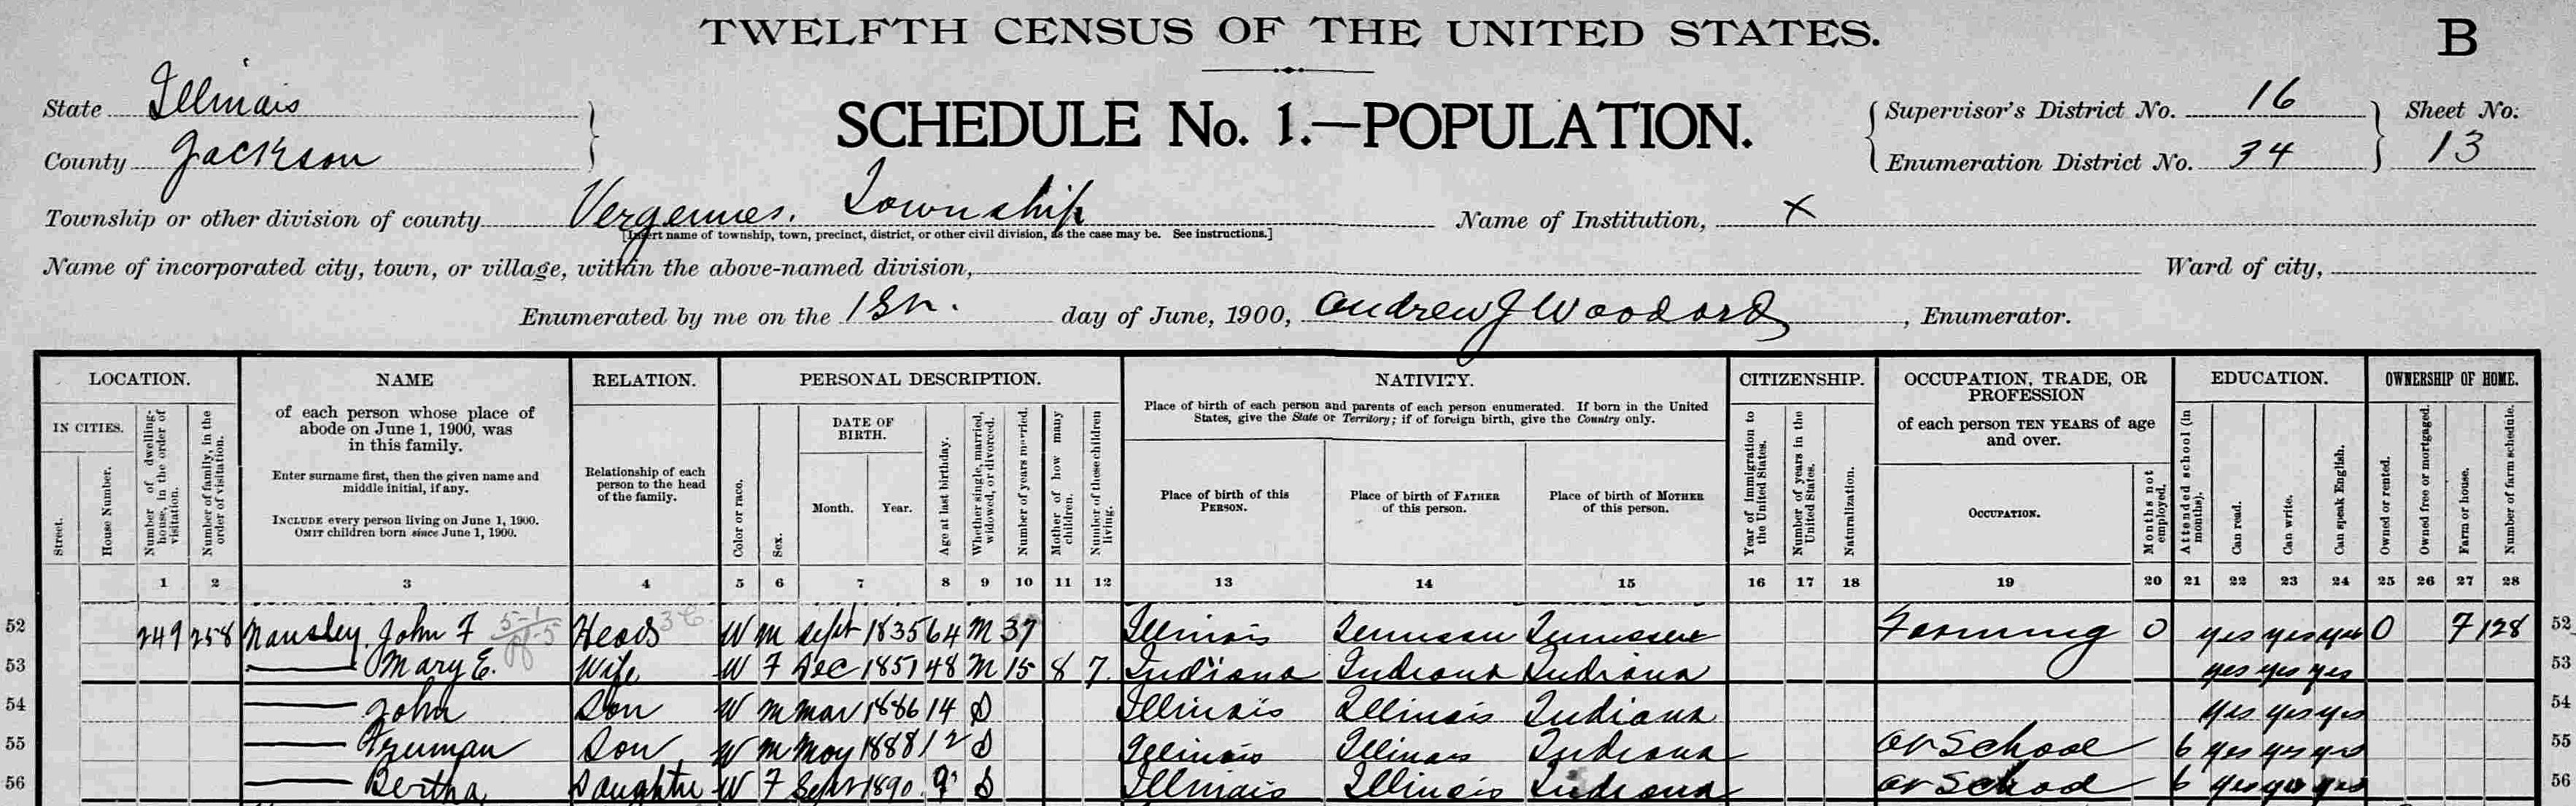 TWELFTH CENSUS OF THE UNITED STATES.
B
State Illinois
County Jackson
SCHEDULE No. 1.—POPULATION.
Supervisor's District No. 16
Enumeration District No. 34
Sheet No.
13
Township or other division of county Vergennes. Township
Name of Institution, X
[Insert name of township, town, precinct, district, or other civil division, as the case may be. See instructions.]
Name of incorporated city, town, or village, within the above-named division,
Ward of city,
Enumerated by me on the day of June, 1900, Andrew J Woodard, Enumerator.
LOCATION.
NAME
RELATION.
PERSONAL DESCRIPTION.
NATIVITY.
CITIZENSHIP.
OCCUPATION, TRADE, OR PROFESSION
EDUCATION.
OWNERSHIP OF HOME.
IN CITIES.
Street.
House Number.
Number of dwelling-house, in the order of visitation.
Number of family, in the order of visitation.
of each person whose place of abode on June 1, 1900, was in this family.
Enter surname first, then the given name and middle initial, if any.
INCLUDE every person living on June 1, 1900.
OMIT children born since June 1, 1900.
Relationship of each person to the head of the family.
Color or race.
Sex.
DATE OF BIRTH.
Month.
Year.
Age at last birthday.
Whether single, married, widowed, or divorced.
Number of years married.
Mother of how many children.
Number of these children living.
Place of birth of each person and parents of each person enumerated. If born in the United States, give the State or Territory; if of foreign birth, give the Country only.
Place of birth of this PERSON.
Place of birth of FATHER of this person.
Place of birth of MOTHER of this person.
Year of immigration to the United States.
Number of years in the United States.
Naturalization.
of each person TEN YEARS of age and over.
OCCUPATION.
Months not employed.
Attended school (in months).
Can read.
Can write.
Can speak English.
Owned or rented.
Owned free or mortgaged.
Farm or house.
Number of farm schedule.
1 2 3 4 5 6 7 8 9 10 11 12 13 14 15 16 17 18 19 20 21 22 23 24 25 26 27 28
52 249 258 John F Head W M Sept 1835 64 M 37 Illinois Tennessee Tennessee Farming 0 yes yes yes O F 128 52
53 — Mary E. Wife W F Dec 1851 48 M 15 8 7 Indiana Indiana Indiana yes yes yes 53
54 — John Son W M Mar 1886 14 S Illinois Illinois Indiana yes yes yes 54
55 — Truman Son W M May 1888 12 S Illinois Illinois Indiana at School 6 yes yes yes 55
56 — Bertha Daughter W F Sept 1890 9 S Illinois Illinois Indiana at School 6 yes yes yes 56